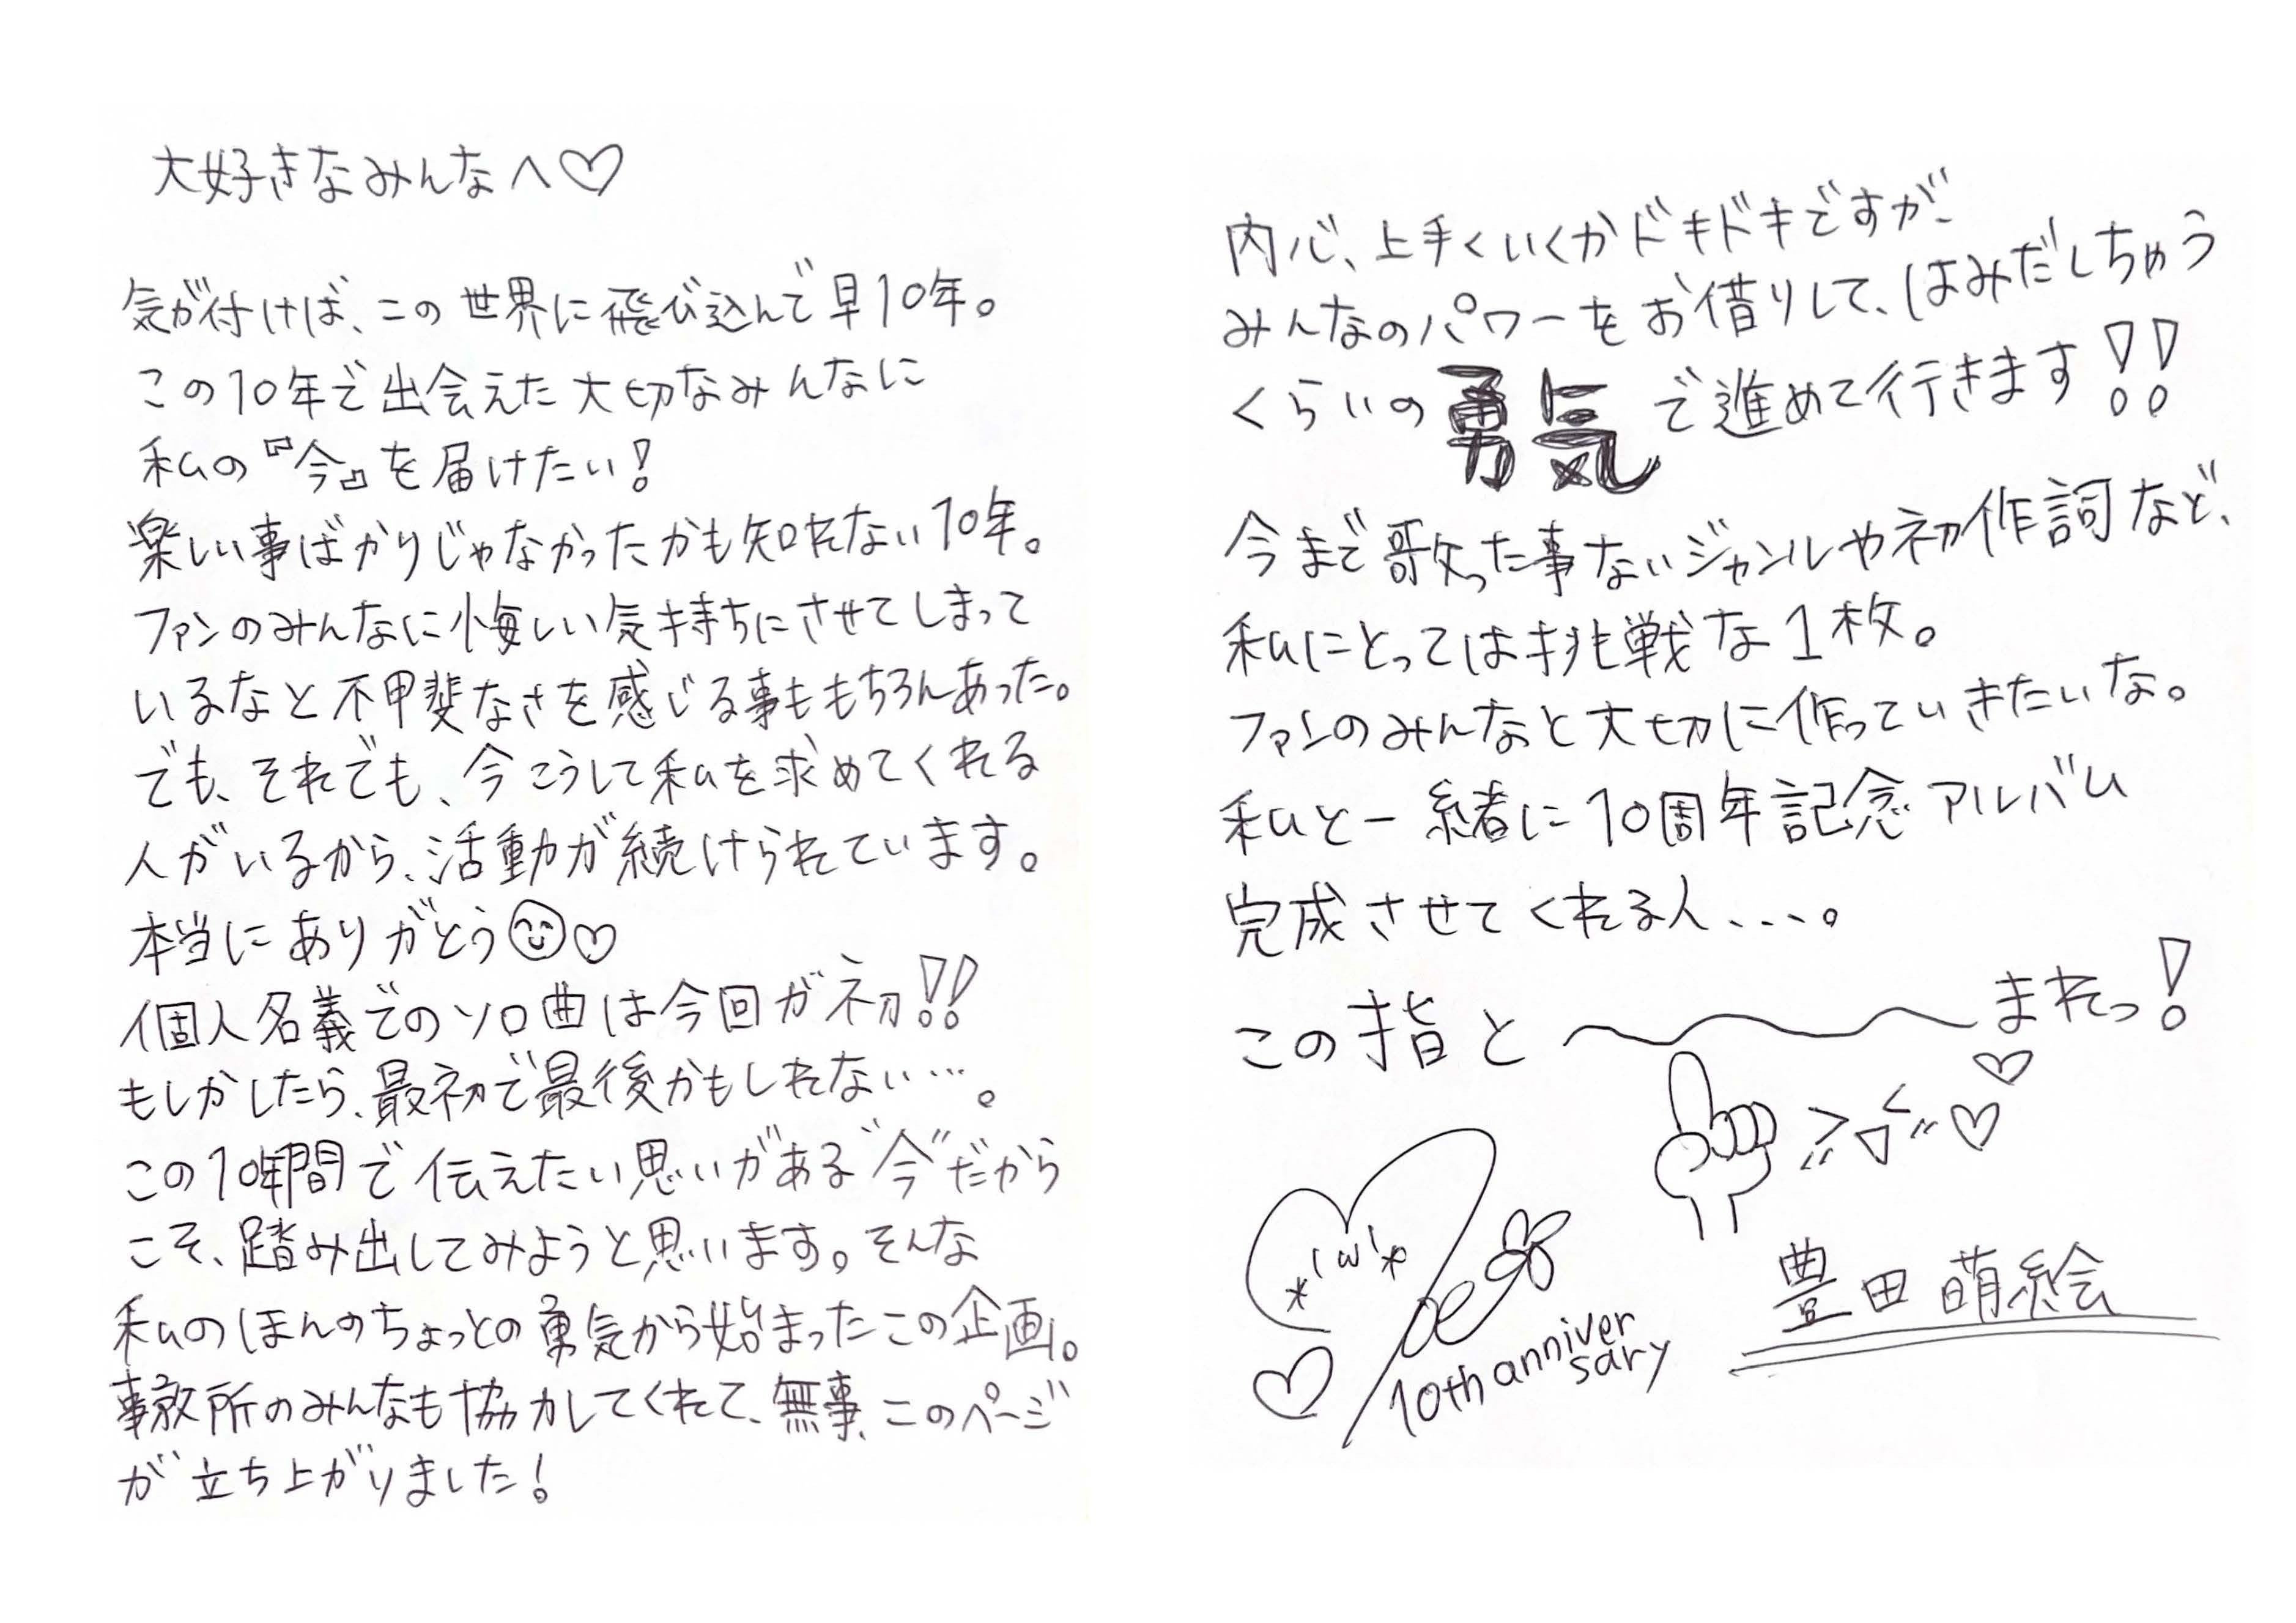 大好きなみんなへ♡
気が付けば、この世界に飛び込んで早10年。
この10年で出会えた大切なみんなに
私の『今』を届けたい!
楽しい事ばかりじゃなかったかも知れない10年。
ファンのみんなに悔しい気持ちにさせてしまって
いるなと不甲斐なさを感じる事ももちろんあった。
でも、それでも、今こうして私を求めてくれる
人がいるから、活動が続けられています。
本当にありがとう😊♡
個人名義でのソロ曲は今回が初!!
もしかしたら、最初で最後かもしれない…。
この10年間で伝えたい思いがある"今"だから
こそ、踏み出してみようと思います。そんな
私のほんのちょっとの勇気から始まったこの企画。
事務所のみんなも協力してくれて、無事、このページ
が立ち上がりました!
内心、上手くいくかドキドキですが、
みんなのパワーをお借りして、はみだしちゃう
くらいの勇気で進めて行きます!!
今まで歌った事ないジャンルや初作詞など、
私にとっては挑戦な1枚。
ファンのみんなと大切に作っていきたいな。
私と一緒に10周年記念アルバム
完成させてくれる人、、、。
この指と〜〜〜まれっ!
10th anniver
sary
豊田萌絵